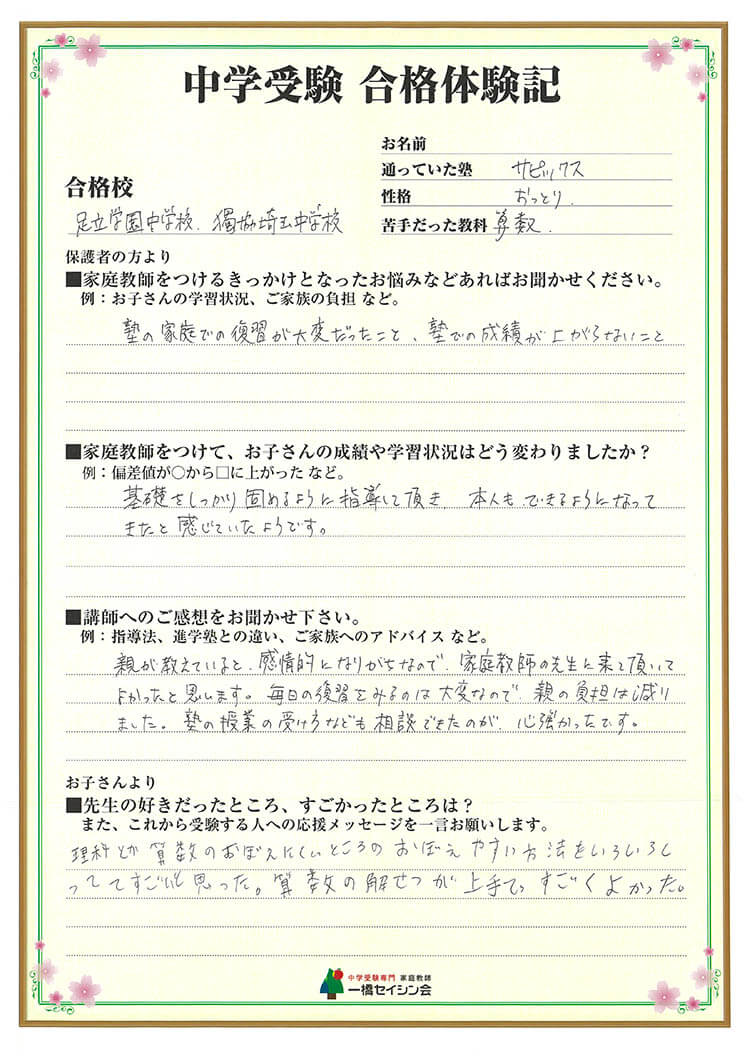 中学受験 合格体験記
お名前
通っていた塾 サピックス
性格 おっとり.
苦手だった教科 算数.
合格校
足立学園中学校. 獨協埼玉中学校
保護者の方より
■家庭教師をつけるきっかけとなったお悩みなどあればお聞かせください。
例：お子さんの学習状況、ご家族の負担 など。
塾の家庭での復習が大変だったこと、塾での成績が上がらないこと
■家庭教師をつけて、お子さんの成績や学習状況はどう変わりましたか？
例：偏差値が○から□に上がった など。
基礎をしっかり固めるように指導して頂き、本人も、できるようになって
きたと感じていたようです。
■講師へのご感想をお聞かせ下さい。
例：指導法、進学塾との違い、ご家族へのアドバイス など。
親が教えていると、感情的になりがちなので、家庭教師の先生に来て頂いて
よかったと思います。毎日の復習をみるのは大変なので、親の負担は減り
ました。塾の授業の受け方なども相談できたのが、心強かったです。
お子さんより
■先生の好きだったところ、すごかったところは？
また、これから受験する人への応援メッセージを一言お願いします。
理科とか算数のおぼえにくいところのおぼえやすい方法をいろいろし
っててすごいと思った。算数の解せつが上手で、すごくよかった。
中学受験専門 家庭教師
一橋セイシン会